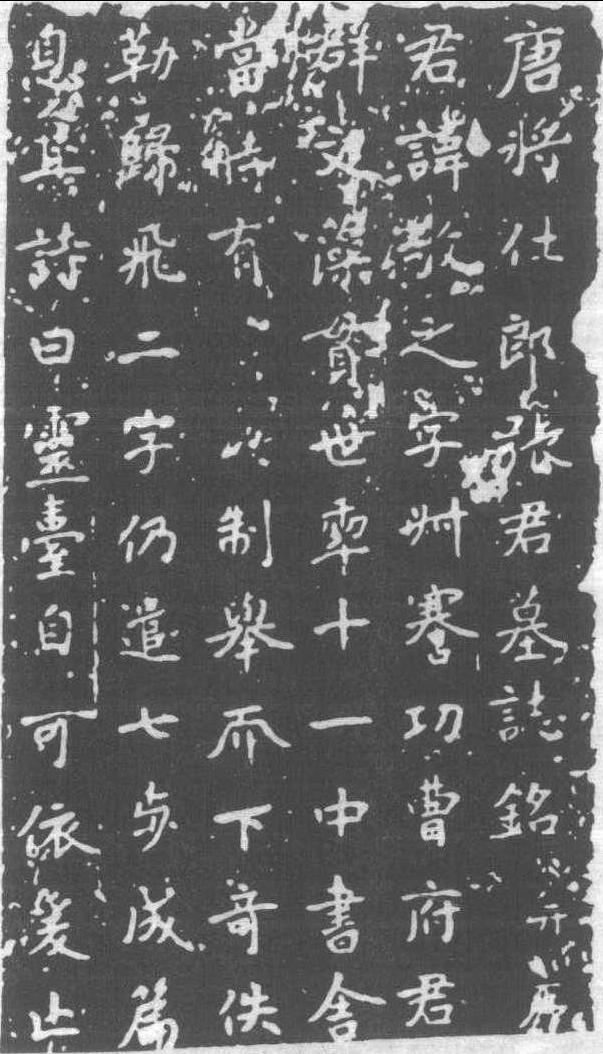 唐将仕郎張君墓誌銘并序
君諱敬之字叔謇功曹府君
群文藻貫世年十一中書舍
當時有以制舉而下奇佚
勒歸飛二字仍遣七步成篇
息其詩曰靈臺自可依爰止